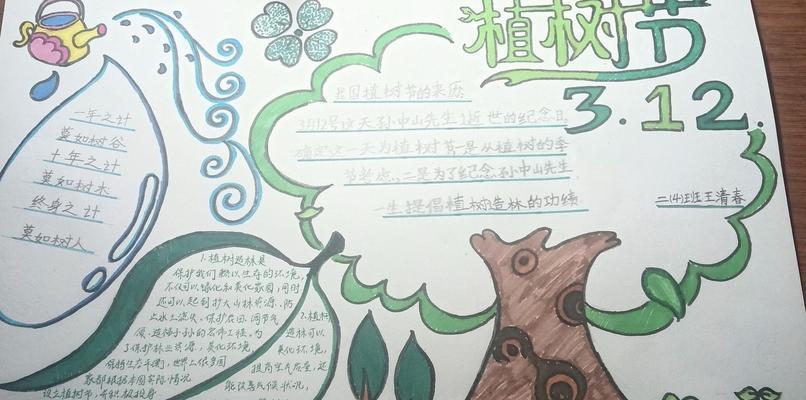 植树节
3.12.
一年之计
莫如树谷
十年之计
莫如树木
终身之计
莫如树人
我国植树节的来历
3月12号这天孙中山先生逝世的纪念日,
确定这一天为植树节,一是从植树的季
节考虑,二是为了纪念孙中山先生
一生提倡植树造林的功绩
二(4)班王清春
1.植树造林是
保护我们赖以生存的环境,
不仅可以绿化和美化家园,同时
还可以起到扩大山林资源、防
止水土流失、保护农田、调节气
候、造福子孙的宏伟工程。为
了保护林业资源,美化环境,
保持生态平衡,世界上很多国
家都根据本国实际情况
设立植树节,号积极投身
2.植树
造林可以
美化环境,
提高空气质量,还
能改善气候状况,